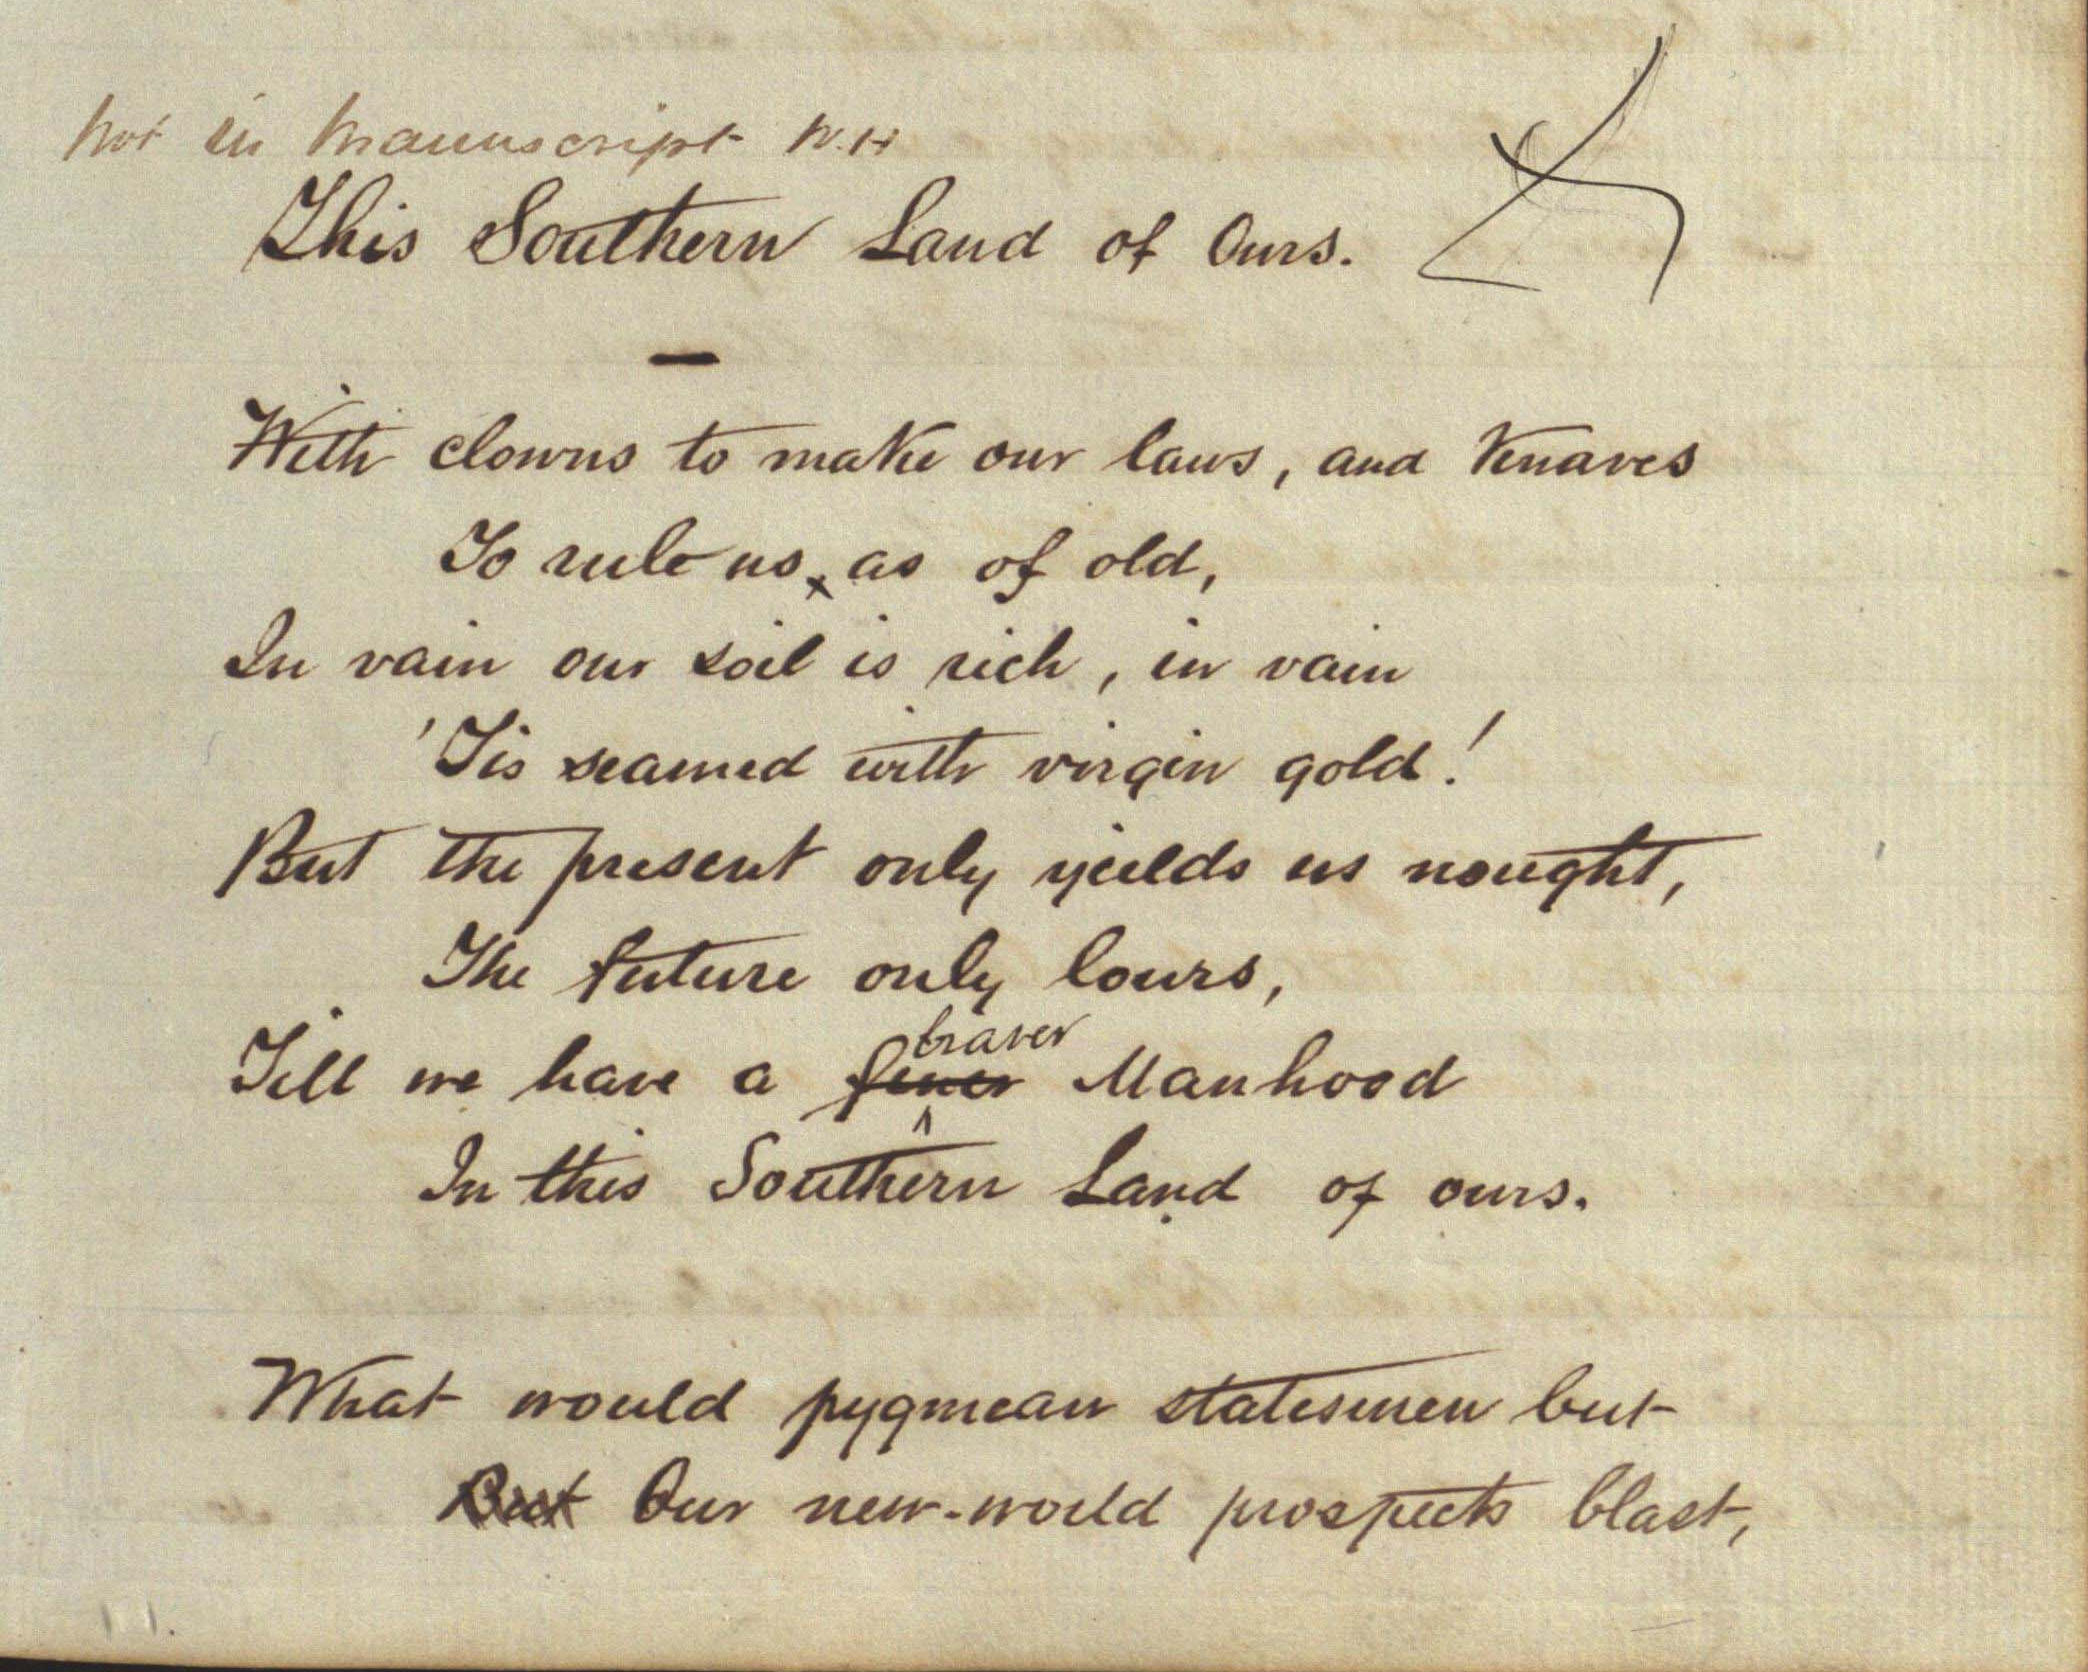 Not in Manuscript W.H
This Southern Land of Ours.
With clowns to make our laws, and Knaves
To rule us, as of old,
In vain our soil is rich, in vain
'Tis seamed with virgin gold!
But the present only yields us nought,
The future only lours,
braver
Till we have a finer Manhood
In this Southern Land of ours.
What would pygmean statesmen but
But Our new-world prospects blast,